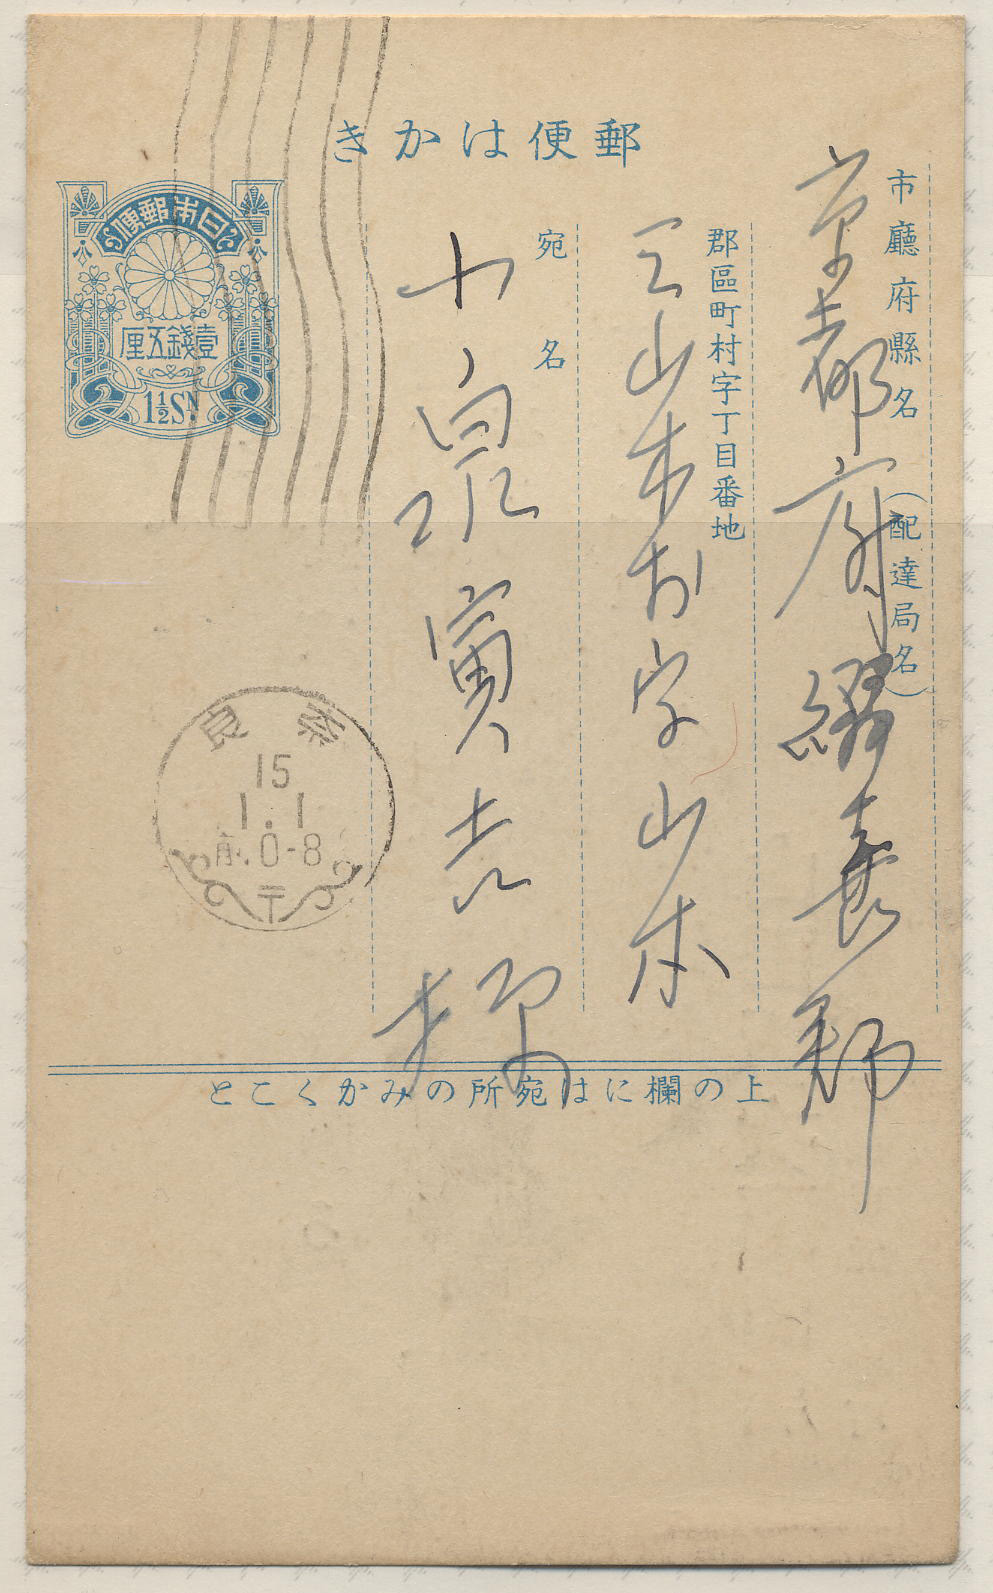 郵便はかき
日本郵便
壹錢五厘
1½Sɴ.
市廳府縣名(配達局名)
京都府綴喜郡
郡區町村字丁目番地
三山木村字山本
宛名
小泉寅吉様
奈良
15
1.1
前.0-8
〒
上の欄には宛所のみかくこと